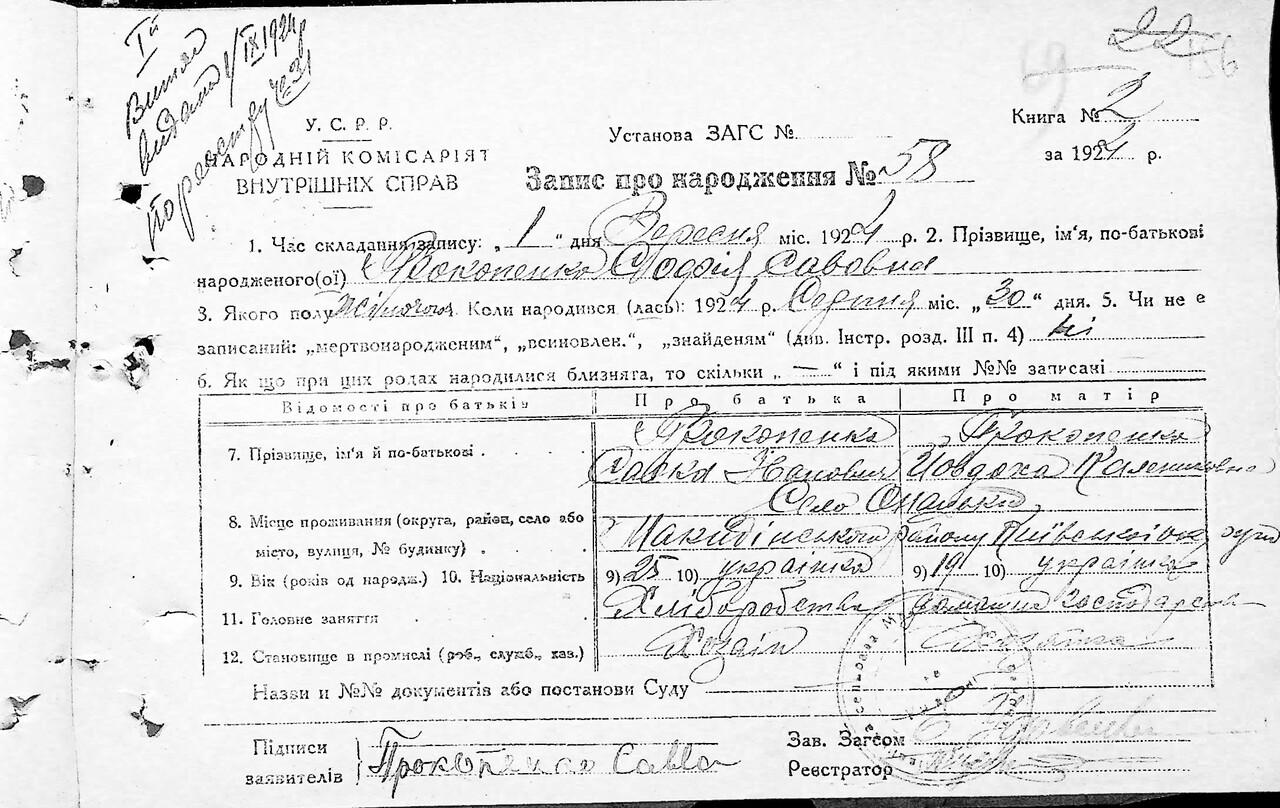 Ій
Витяг
видано 1/IX 1924 р
По реєстру № 21
22
69
156
У. С. Р. Р.
НАРОДНІЙ КОМІСАРІЯТ
ВНУТРІШНІХ СПРАВ
Установа ЗАГС №
Книга № 2
за 1924 р.
Запис про народження № 58
1. Час складання запису: „ 1 “ дня Вересня міс. 1924 р. 2. Прізвище, ім'я, по-батькові
народженого(ої) Прокопенко Софія Савовна
3. Якого полу жіночого. Коли народився (лась): 1924 р. Серпня міс. „ 30 “ дня. 5. Чи не є
записаний: „мертвонародженим“, „всиновлен.“, „знайденям“ (див. Інстр. розд. III п. 4) ні
6. Як що при цих родах народилися близняга, то скільки „ — “ і під якими №№ записані
Відомості про батьків Про батька Про матір
7. Прізвище, ім'я й по-батькові . Прокопенко Прокопенко
Савка Йовдоха
8. Місце проживання (округа, район, село або Село
місто, вулиця, № будинку) . району Київської округи
9. Вік (років од народж.) 10. Національність 9) 25 10) українка 9) 19 10) українка
11. Головне заняття . Хліборобство домашнє господарство
12. Становище в промислі (роб., служб., хаз.) Хозяїн Хозяйка
Назви и №№ документів або постанови Суду —
Підписи
заявителів Прокопенко Савва
Зав. Загсом
Реєстратор